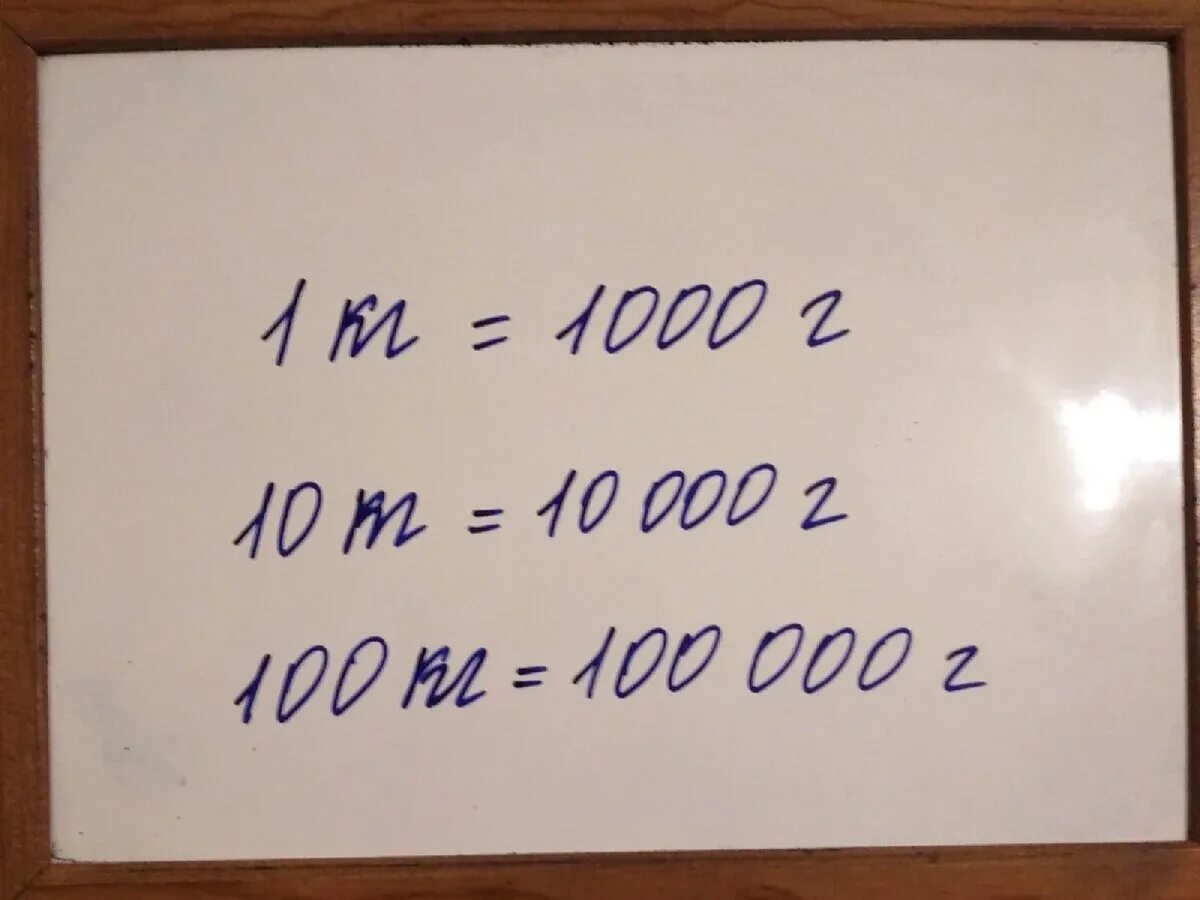 1 кг = 1000 г
10 кг = 10 000 г
100 кг = 100 000 г